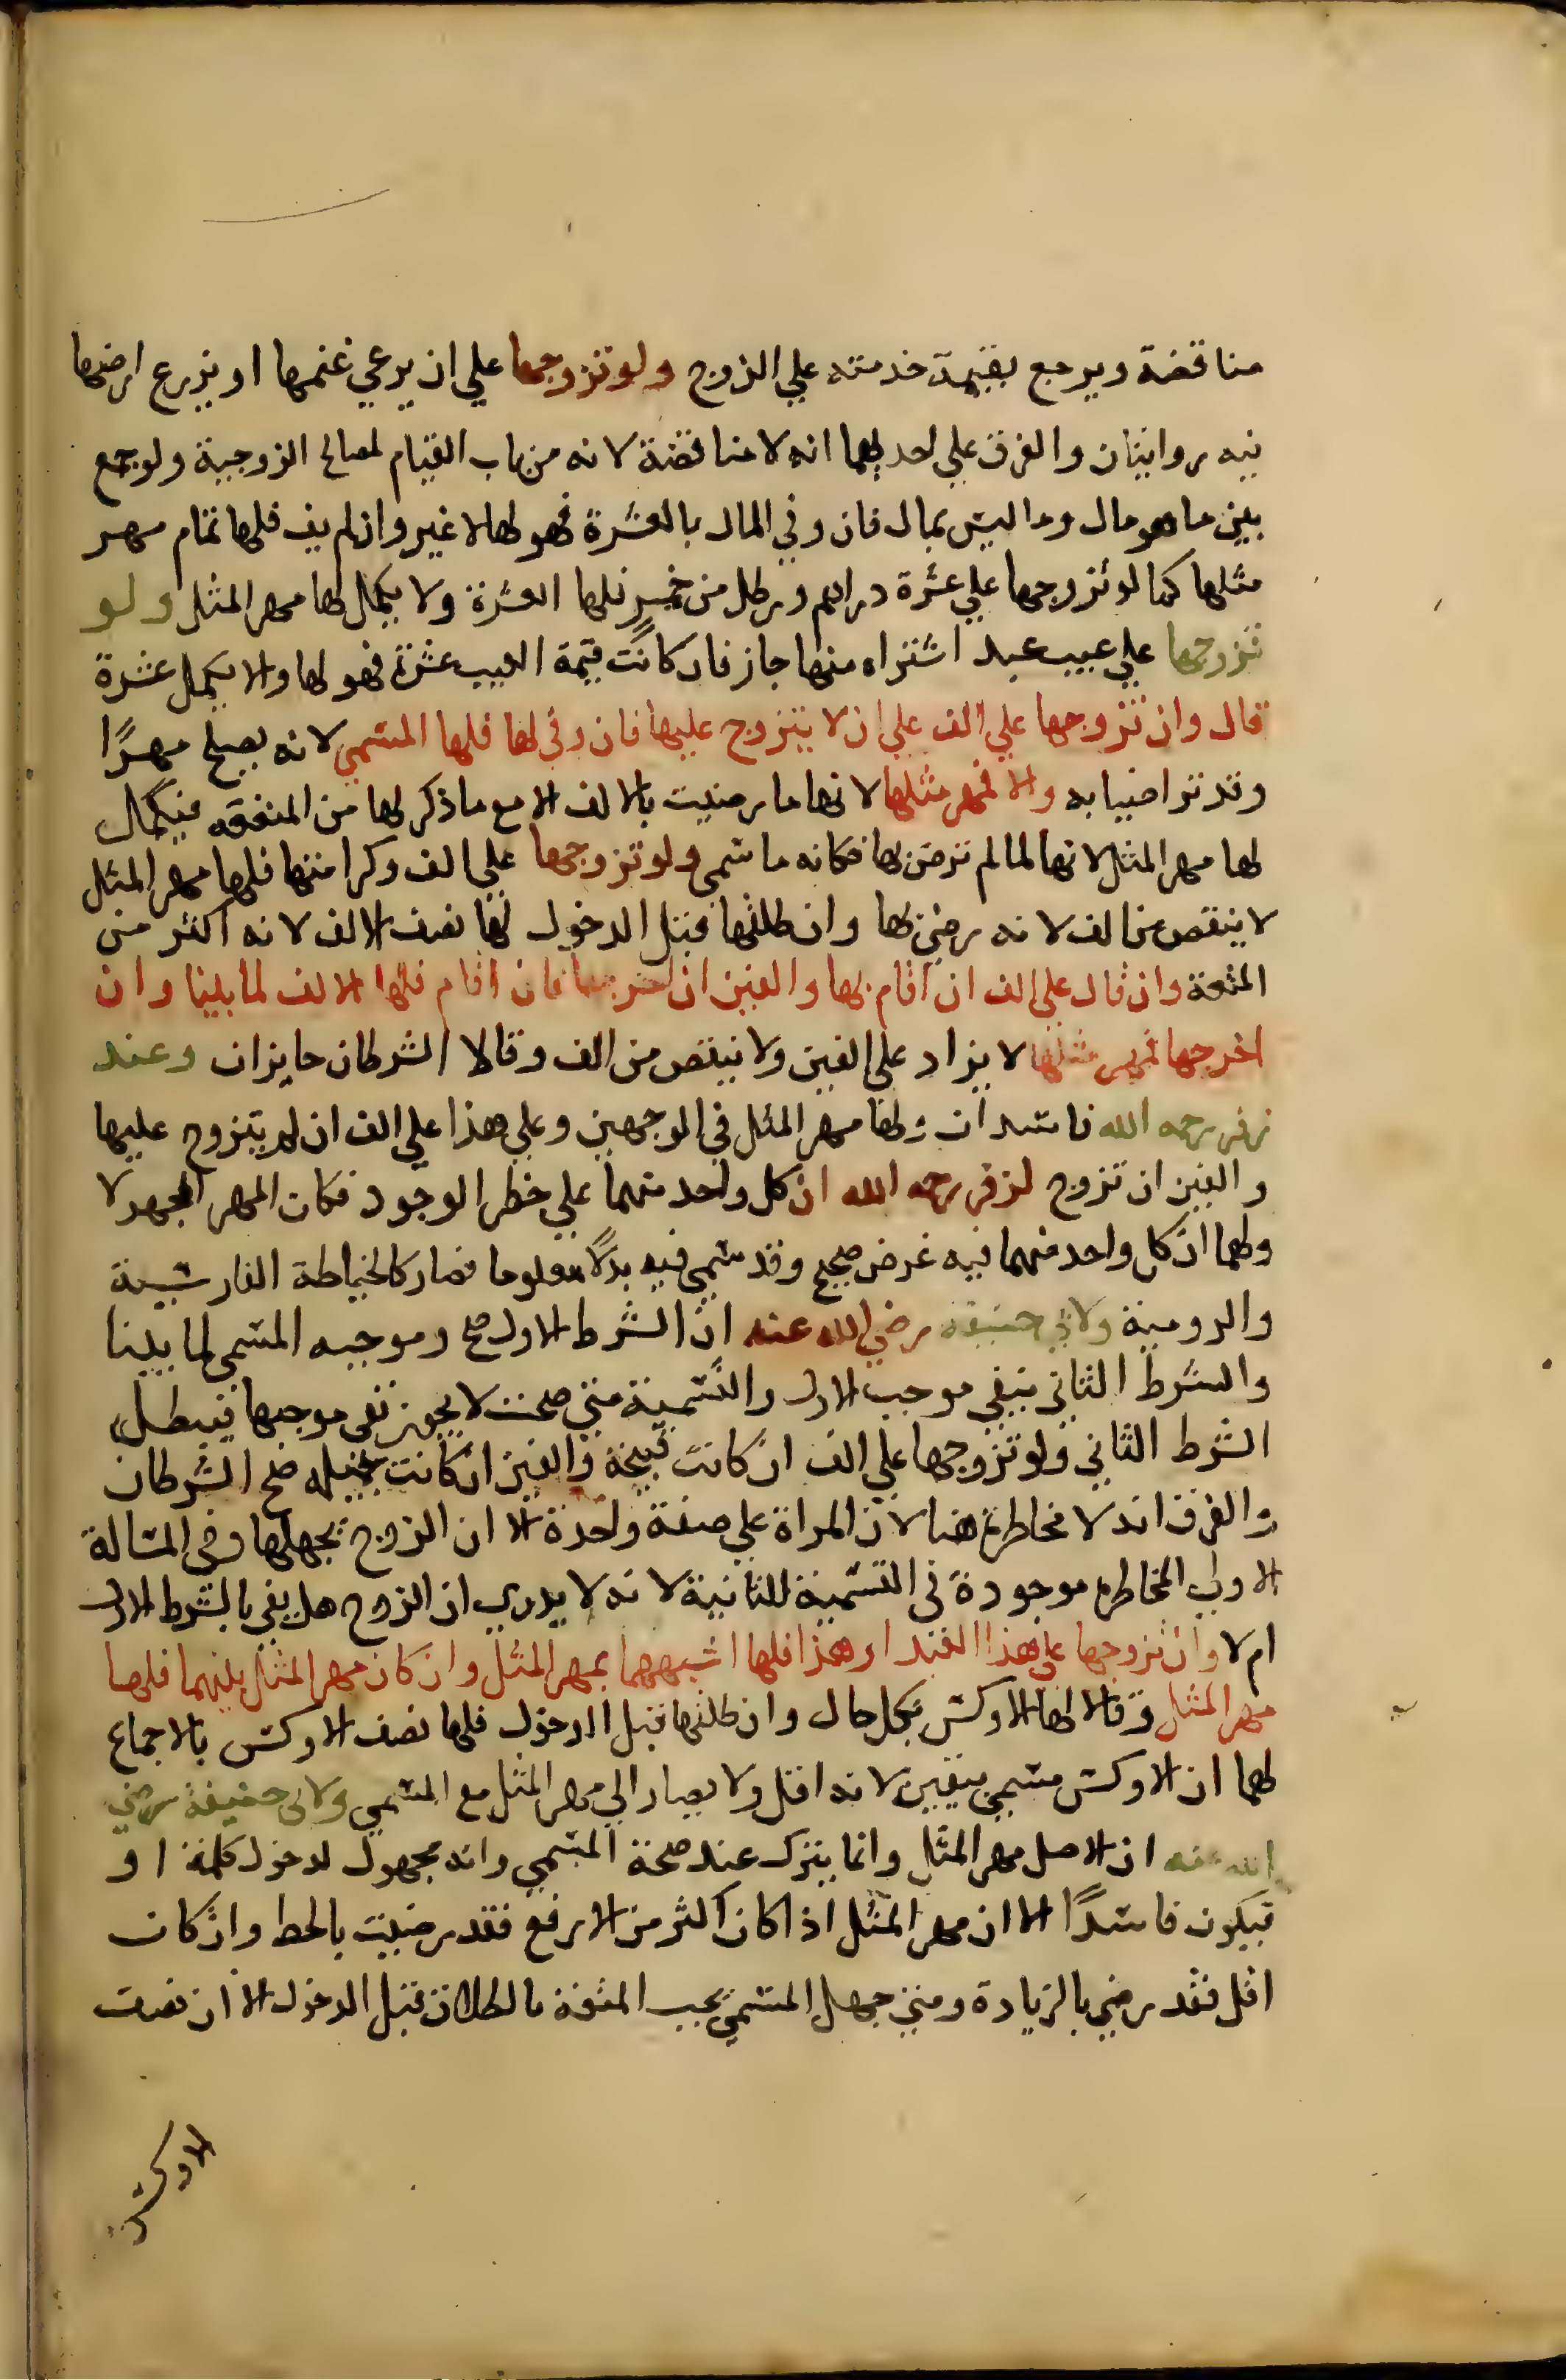 مناقضة ويرجع بقيمة خدمته علي الزوج ولو تزوجها علي ان يرعي غنمها او يزرع ارضها
فيه روايتان والفرق علي احديهما انه لا مناقضة لانه من باب القيام لمصالح الزوجية ولو جمع
بين ما هو مال وما ليس بمال فان وفي المال بالعشرة فهو لها لا غير وان لم يف فلها تمام مهر
مثلها كما لو تزوجها علي عشرة دراهم ورطل من خمر فلها العشرة ولا يكمل لها مهر المثل ولو
تزوجها علي عيب عبد اشتراه منها جاز فان كانت قيمة العيب عشرة فهو لها والا يكمل عشرة
قال وان تزوجها علي الف علي ان لا يتزوج عليها فان وفي لها فلها المسمي لانه يصلح مهرًا
وقد تراضيا به والا فمهر مثلها لانها ما رضيت بالالف الا مع ما ذكر لها من المنفعه فيكمل
لها مهر المثل لانها لما لم ترض بها فكانه ما سمي ولو تزوجها علي الف وكرامتها فلها مهر المثل
لا ينقص من الف لانه رضي بها وان طلقها قبل الدخول لها نصف الالف لانه اكثر من
المتعة وان قال علي الف ان اقام بها والفين ان اخرجها فان اقام فلها الالف لما بينا وان
اخرجها فمهر مثلها لا يزاد علي الفين ولا ينقص من الف وقالا الشرطان جايزان وعند
زفر رحمه الله فاسدان ولها مهر المثل في الوجهين وعلي هذا علي الف ان لم يتزوج عليها
والفين ان تزوج لزفر رحمه الله ان كل واحد منهما علي خطر الوجود فكان المهر مجهولا
ولهما ان كل واحد منهما فيه غرض صحيح وقد سمي فيه بدلًا معلوما فصار كالخياطة الفارسية
والرومية ولابي حنيفه رضي الله عنه ان الشرط الاول صح وموجبه المسمي لما بينا
والشرط الثاني ينفي موجب الاول والتسمية متي صحت لا يجوز نفي موجبها فيبطل
الشرط الثاني ولو تزوجها علي الف ان كانت قبيحة والفين ان كانت جميله صح الشرطان
والفرق انه لا مخاطرة هنا لان المراة علي صفة واحدة الا ان الزوج يجهلها وفي المسالة
الاولي المخاطره موجودة في التسمية الثانية لانه لا يدري ان الزوج هل يفي بالشرط الاول
ام لا وان تزوجها علي هذا العبد او هذا فلها اشبههما بمهر المثل وان كان مهر المثل بينهما فلها
مهر المثل وقالا لها الاوكس بكل حال وان طلقها قبل الدخول فلها نصف الاوكس بالاجماع
لهما ان الاوكس مسمي بيقين لانه اقل ولا يصار الي مهر المثل مع المسمي ولابي حنيفة رضي
الله عنه ان الاصل مهر المثل وانما يترك عند صحة المسمي وانه مجهول لدخول كلمة او
فيكون فاسدًا الا ان مهر المثل اذا كان اكثر من الارفع فقد رضيت بالحط وان كان
اقل فقد رضي بالزيادة ومتي جهل المسمي يجب المتعة بالطلاق قبل الدخول الا ان نصف
الاوكس